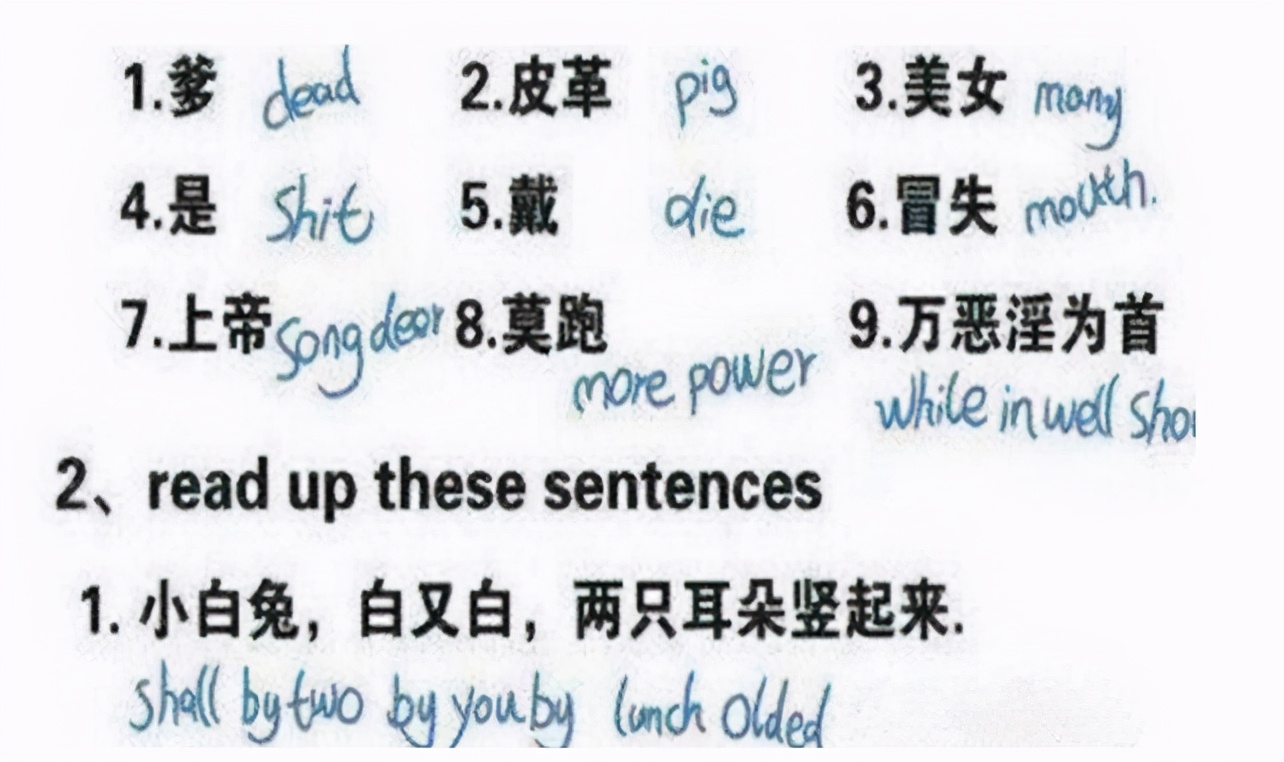 1.爹 dead 2.皮革 pig 3.美女 many
4.是 shit 5.戴 die 6.冒失 mouth.
7.上帝 song dear 8.莫跑 more power 9.万恶淫为首 while in well
2、read up these sentences
1. 小白兔，白又白，两只耳朵竖起来.
shall by two by you by lunch olded